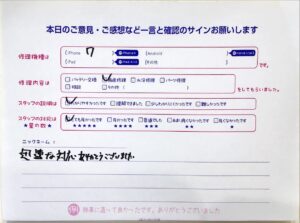 本日のご意見・ご感想など一言と確認のサインお願いします
修理機種は
iPhone 7
Android
iPad
その他
です。
修理内容は
バッテリー交換
水没修理
パーツ修理
その他
をしてもらいました。
スタッフの説明は
わかりやすかったです
理解できました
少しわかりにくかったです
難しかったです
スタッフの対応は
★星の数★
とても良かったです
良かったです
普通でした
あまり良くなかったです
良くなかったです
★★★★★
★★★★
★★★
★★
★
ニックネーム：
迅速な対応ありがとうございます
最後に選って頂いたのですが、ありがとうございました